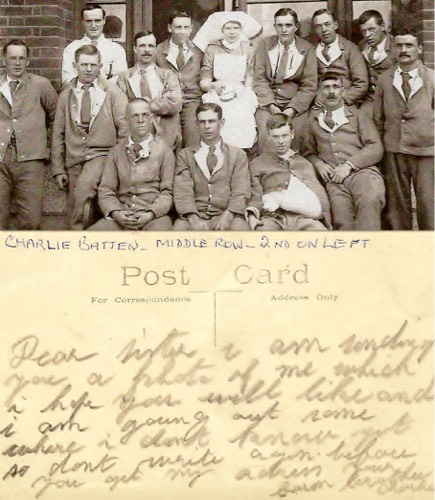 CHARLIE BATTEN - MIDDLE ROW - 2ND ON LEFT
Post Card
For Correspondence Address Only
Dear sister i am sending
you a photo of me which
i hope you will like and
i am going out some
where i dont know yet
so dont write agin before
you get my adress your
brother